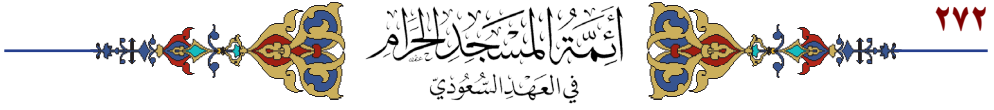 ٢٧٢
أَئِمَّةُ المَسْجِدِ الحَرَامِ
فِي العَهْدِ السُّعُودِيّ